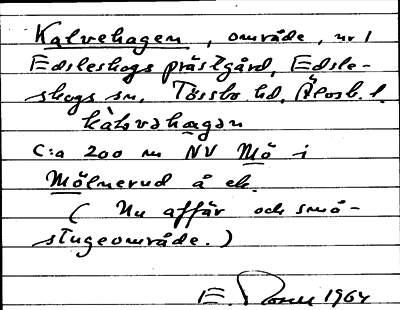 Kalvehagen, område, nr 1
Edsleskogs prästgård, Edsle-
skogs sn, Tössbo hd, Älvsb. l.
kàlvəhagən
C:a 200 m NV Mö i
Mölnerud å ek.
( Nu affär och små-
stugeområde.)
E. 1964